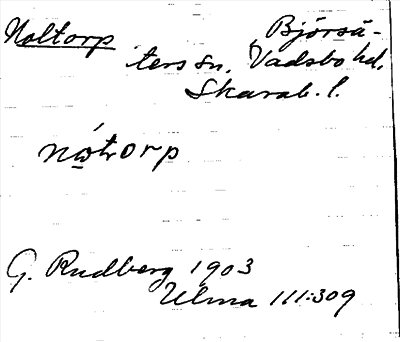 Noltorp Björsä-
ters sn. Vadsbo hd.
Skarab. l.
nǫ́torp
G. Rudberg 1903
Ulma 111:309